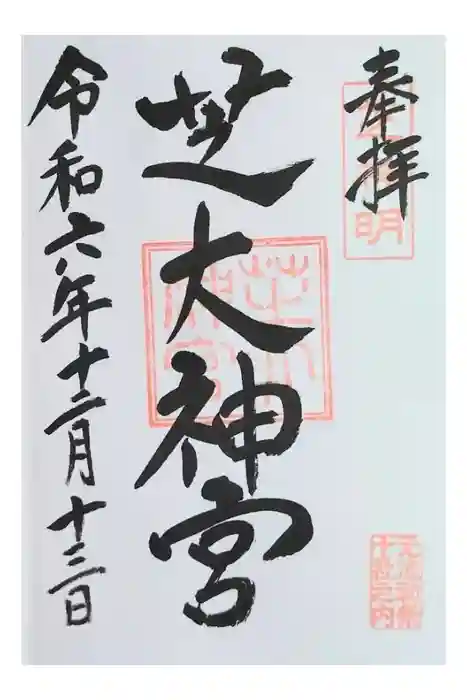 奉拝
芝大神宮
令和六年十二月十三日